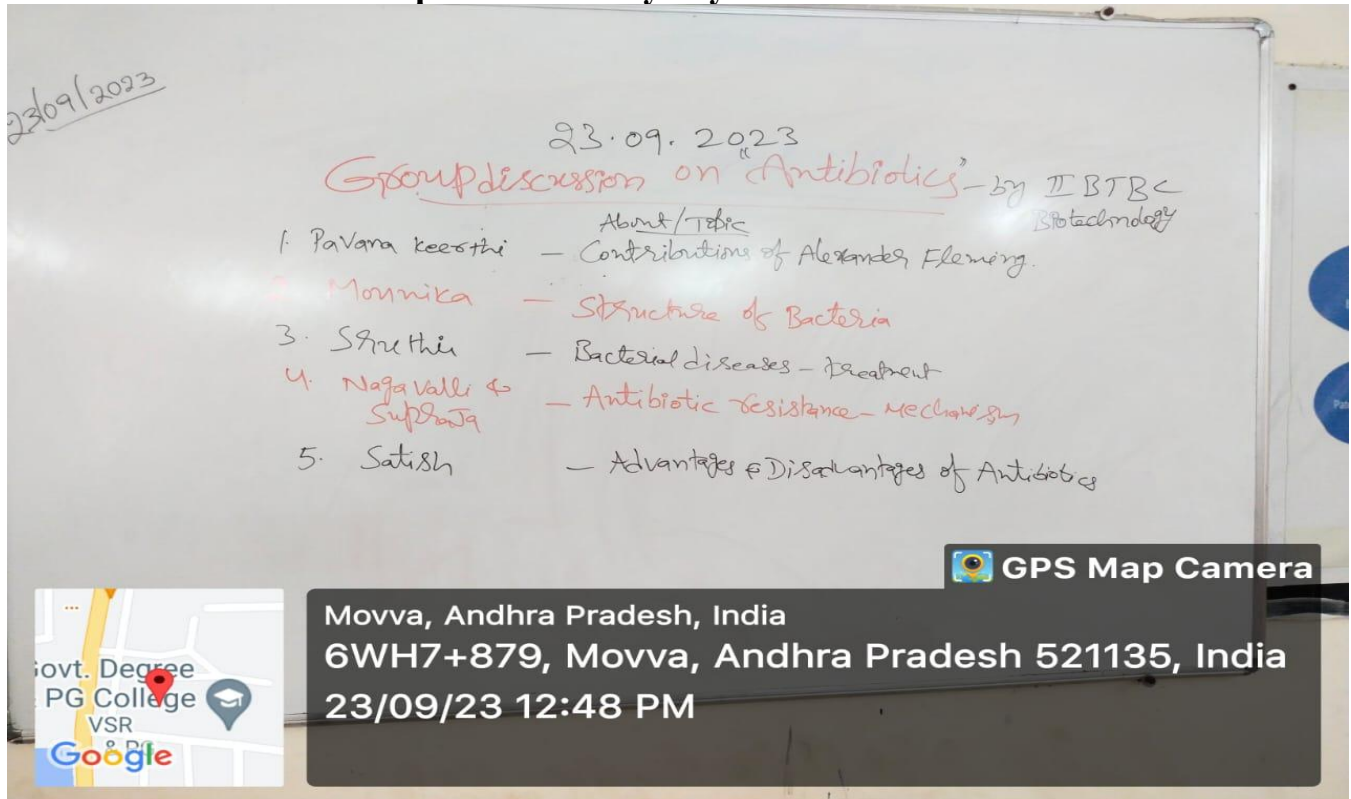 23/09/2023
23.09.2023
Group discussion on "Antibiotics" - by II BTBC
Biotechnology
About/Topic
1. Pavana Keerthi – Contributions of Alexander Fleming.
Mounika – Structure of Bacteria
3. Shruthi – Bacterial diseases – treatment
4. Nagavalli & Supraja – Antibiotic resistance – Mechanism
5. Satish – Advantages & Disadvantages of Antibiotics
GPS Map Camera
Movva, Andhra Pradesh, India
6WH7+879, Movva, Andhra Pradesh 521135, India
23/09/23 12:48 PM
Govt. Degree
PG College
VSR
Google